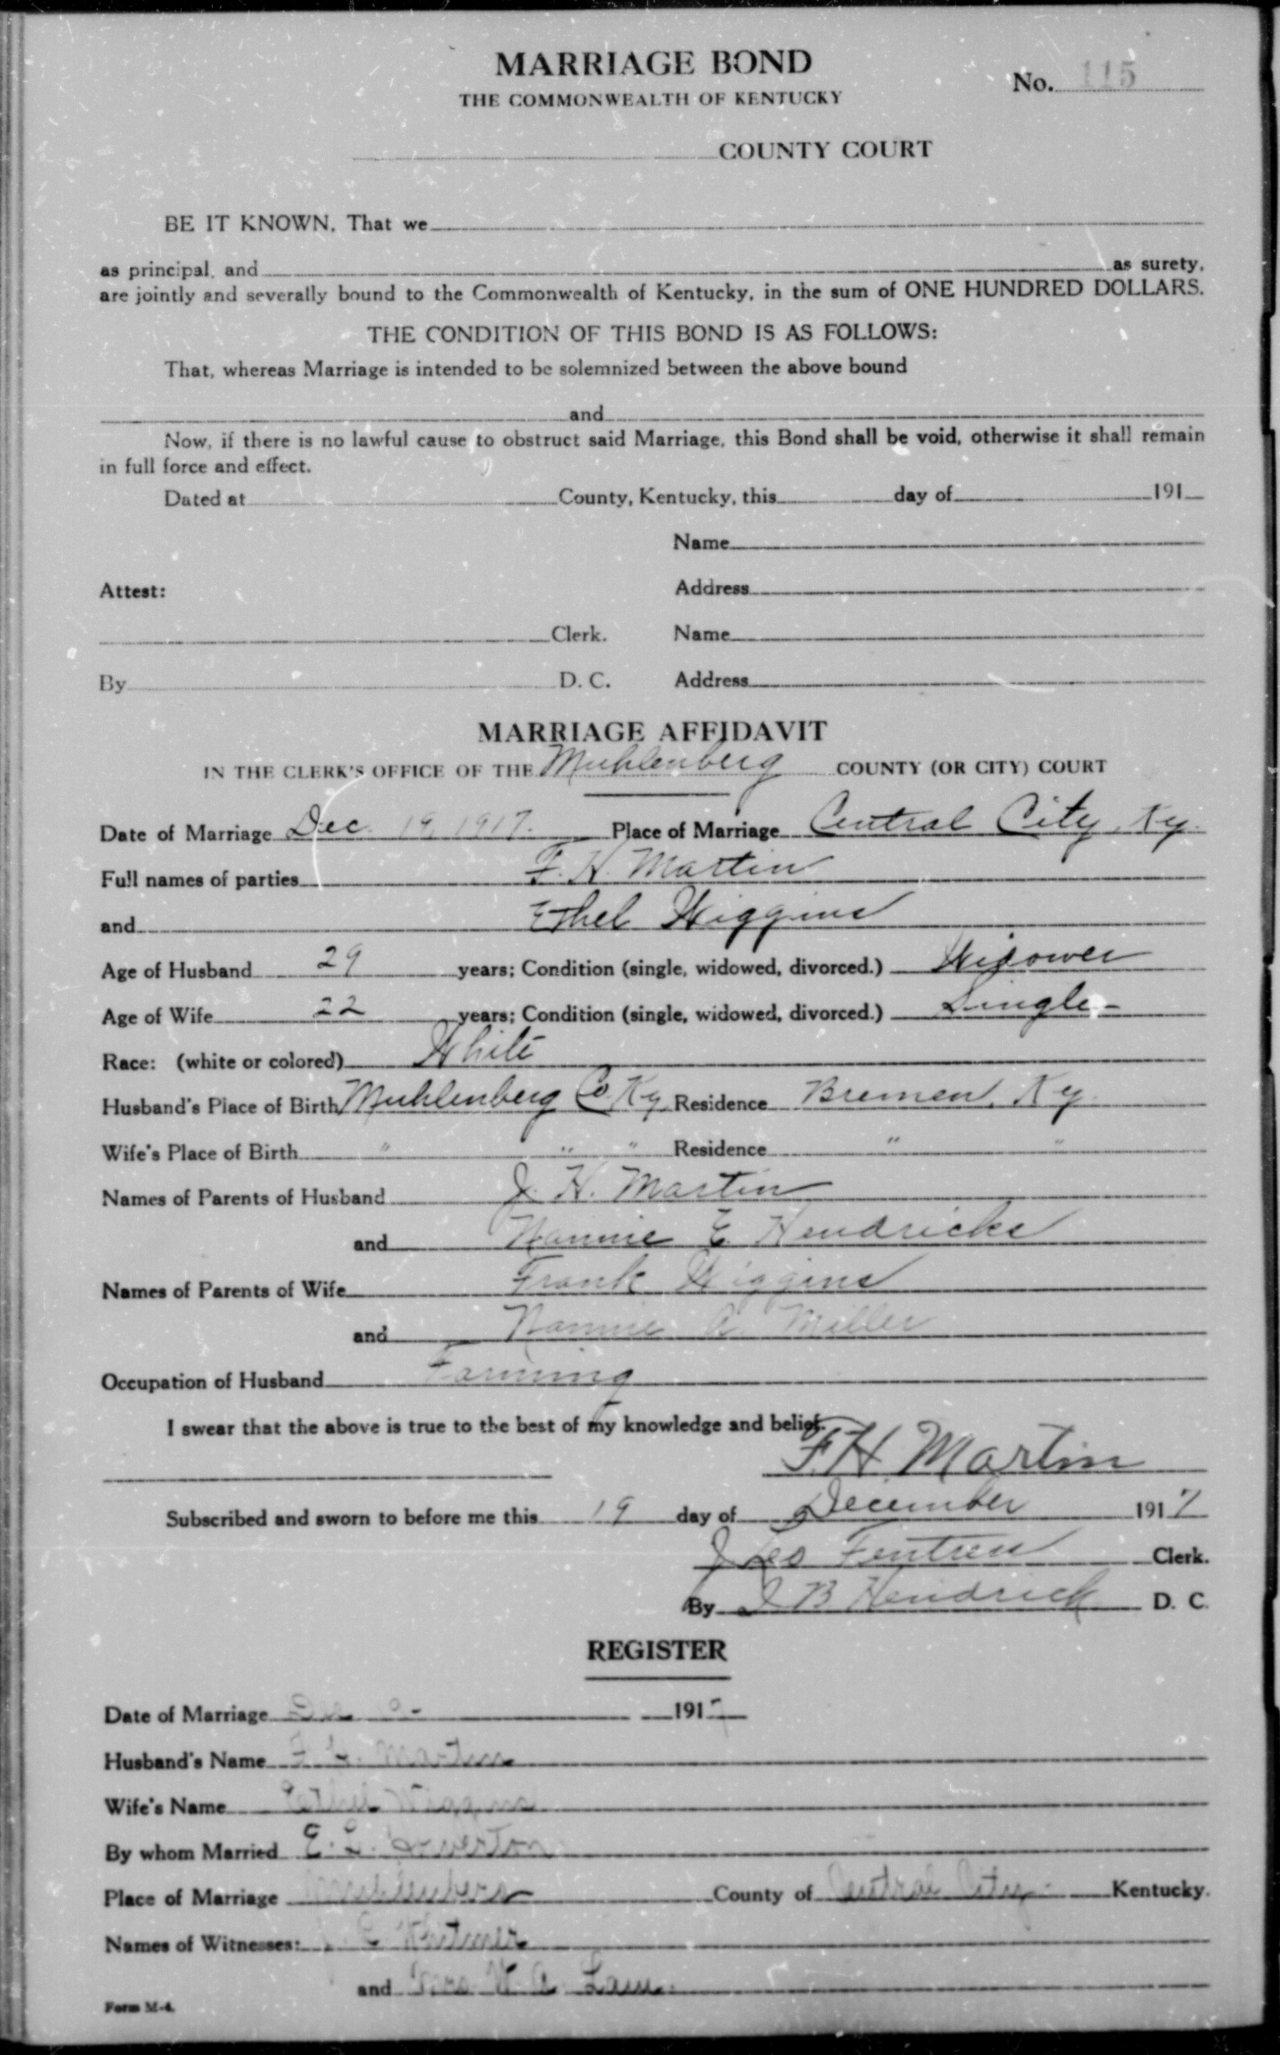 MARRIAGE BOND
No. 115
THE COMMONWEALTH OF KENTUCKY
COUNTY COURT
BE IT KNOWN, That we
as principal, and as surety,
are jointly and severally bound to the Commonwealth of Kentucky, in the sum of ONE HUNDRED DOLLARS.
THE CONDITION OF THIS BOND IS AS FOLLOWS:
That, whereas Marriage is intended to be solemnized between the above bound
and
Now, if there is no lawful cause to obstruct said Marriage, this Bond shall be void, otherwise it shall remain
in full force and effect.
Dated at County, Kentucky, this day of 191
Name
Attest: Address
Clerk. Name
By D. C. Address
MARRIAGE AFFIDAVIT
IN THE CLERK'S OFFICE OF THE Muhlenberg COUNTY (OR CITY) COURT
Date of Marriage Dec. 19, 1917. Place of Marriage Central City, Ky.
Full names of parties F. H. Martin
and Ethel Wiggins
Age of Husband 29 years; Condition (single, widowed, divorced.) Widower
Age of Wife 22 years; Condition (single, widowed, divorced.) Single
Race: (white or colored) White
Husband's Place of Birth Muhlenberg Co. Ky. Residence Bremen, Ky.
Wife's Place of Birth " " " Residence " "
Names of Parents of Husband J. H. Martin
and Nannie E. Hendricks
Names of Parents of Wife Frank Wiggins
and Nannie A. Miller
Occupation of Husband Farming
I swear that the above is true to the best of my knowledge and belief.
F. H Martin
Subscribed and sworn to before me this 19 day of December 1917
J Leo Fentress Clerk.
By J B Hendrick D. C.
REGISTER
Date of Marriage Dec 1917
Husband's Name Martin
Wife's Name Ethel Wiggins
By whom Married E. L. Overton
Place of Marriage Muhlenberg County of Central City Kentucky.
Names of Witnesses: E Whitmer
and Mrs W. A. Lam
Form M-4.